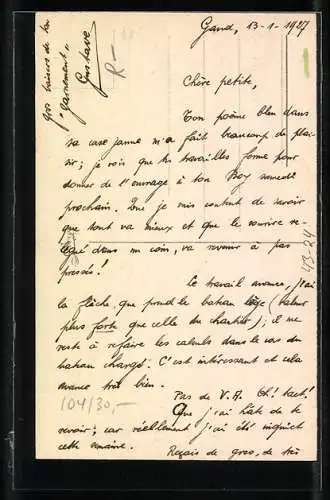 Gand, 13-1-1927
Chère petite,
Ton poème bleu dans
sa case jaune m'a fait beaucoup de plai-
sir; je vois que tu travailles ferme pour
donner de l'ouvrage à ton Boy samedi
prochain. Que je suis content de savoir
que tout va mieux et que le sourire re-
légué dans un coin, va revenir à pas
pressés!
Le travail avance, j'ai
la flèche que prend le bateau lège (valeur
plus forte que celle du chantier); il me
reste à refaire les calculs dans le cas du
bateau chargé. C'est intéressant et cela
avance très bien.
Pas de V.A. Oh! tact!
Que j'ai hâte de te
revoir; car réellement j'ai été inquiet
cette semaine.
Reçois de gros, de très
gros baisers de ton
"garnement"
Gustave
R-
43-24
104/30,-